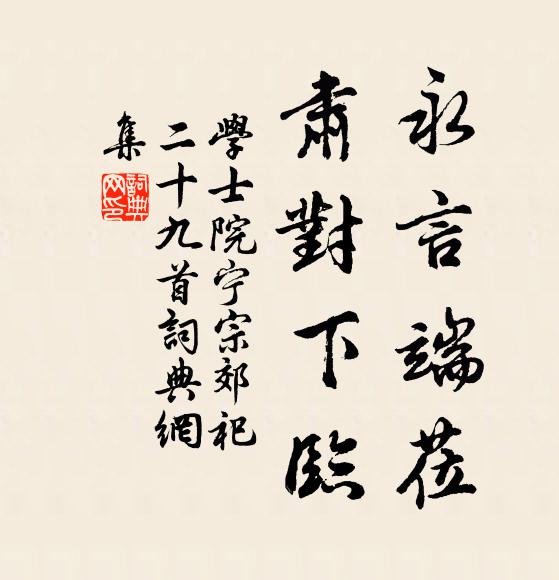 永言端莅
肅對下臨
學士院宁宗郊祀
二十九首詞典網
集
詞典
网印